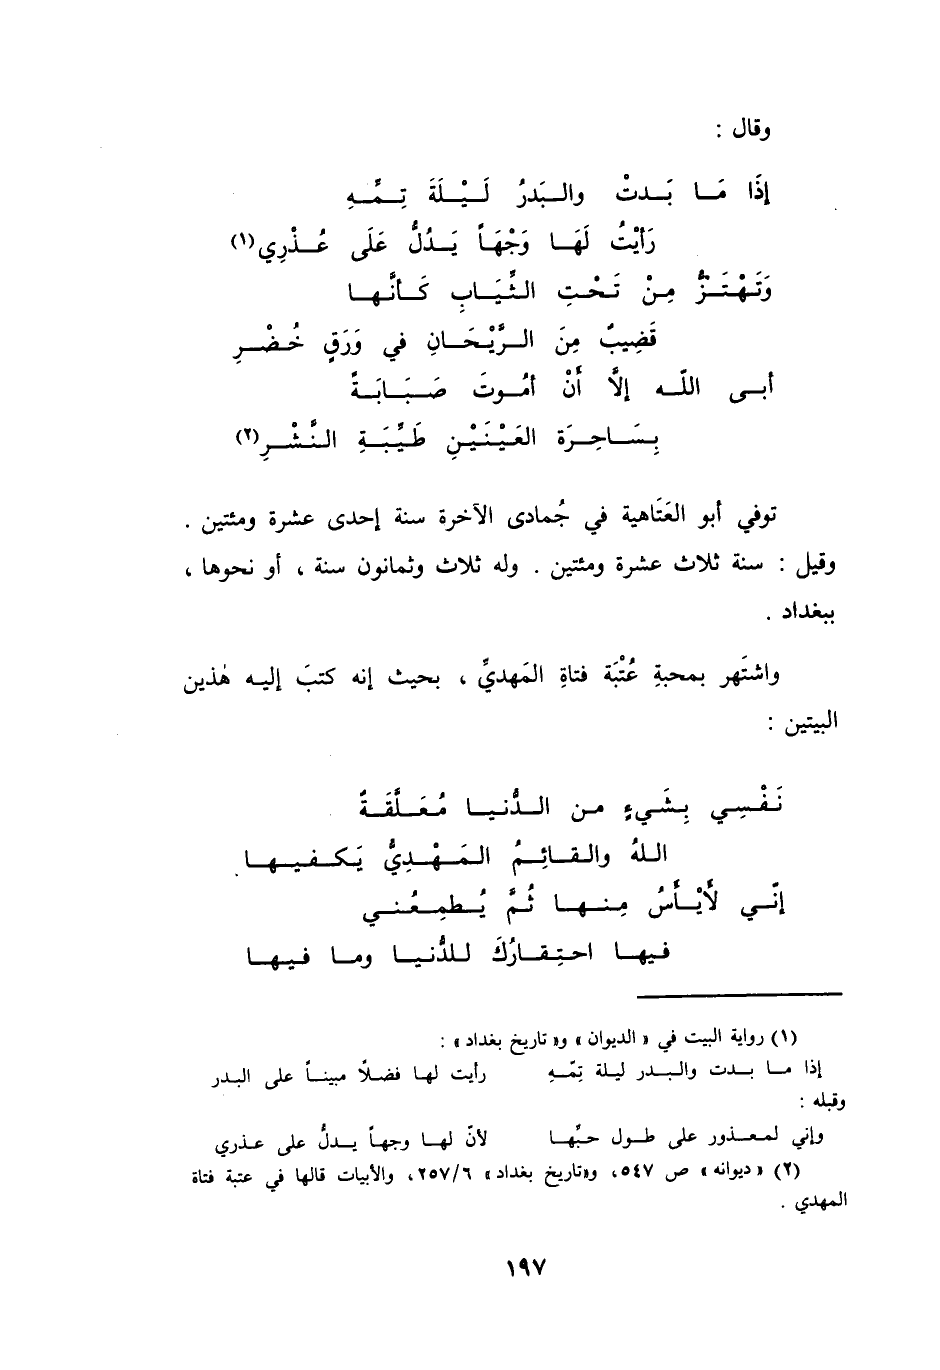 وقال :
إِذَا مَــا بَــدتْ والــبَدرُ لَــيْــلَةَ تِــمَّــهِ
رَأيْتُ لَهَــا وَجْهَاً يَــدُلُّ عَلَى عُــذْرِي(١)
وَتَـهْـتَــزُّ مِـنْ تَـحْـتِ الـثِّـيَــابِ كَــأنَّـهـا
قَضِيبٌ مِنَ الــرَّيْـحَــانِ في وَرَقٍ خُـضْــرِ
أبــى اللّــه إلاَّ أنْ أمُــوتَ صَــبَــابَــةً
بِــسَــاحِــرَة العَـيْـنَـيْـنِ طَـيِّـبَـةِ الـنَّـشْــرِ(٢)
توفي أبو العَتَاهية في جُمادى الآخرة سنة إحدى عشرة ومئتين .
وقيل : سنة ثلاث عشرة ومئتين . وله ثلاث وثمانون سنة ، أو نحوها ،
ببغداد .
واشتَهر بمحبةِ عُتْبَة فتاةِ المَهديِّ ، بحيث إنه كتبَ إليه هٰذين
البيتين :
نَـفْـسِـي بِـشَـيءٍ مـن الـدُّنـيــا مُـعَــلَّقَــةٌ
اللهُ والـقـائِـمُ الـمَـهْـدِيُّ يَـكـفـيـهــا
إنّــي لَأَيْــأَسُ مِـنـهــا ثُـمَّ يُــطـمِــعُـنــي
فـيـهــا احـتِـقــارُكَ لـلدُّنـيــا ومــا فـيـهــا
(١) رواية البيت في « الديوان » و« تاريخ بغداد » :
إذا مــا بــدت والــبــدر ليــلة تِمّــهِ رأيت لهــا فضــلاً مبينــاً على البــدر
وقبله :
وإني لمعــذور على طــول حبِّهــا لأنّ لهــا وجهــاً يــدلُّ على عــذري
(٢) « ديوانه » ص ٥٤٧، و«تاريخ بغداد» ٢٥٧/٦، والأبيات قالها في عتبة فتاة
المهدي .
١٩٧